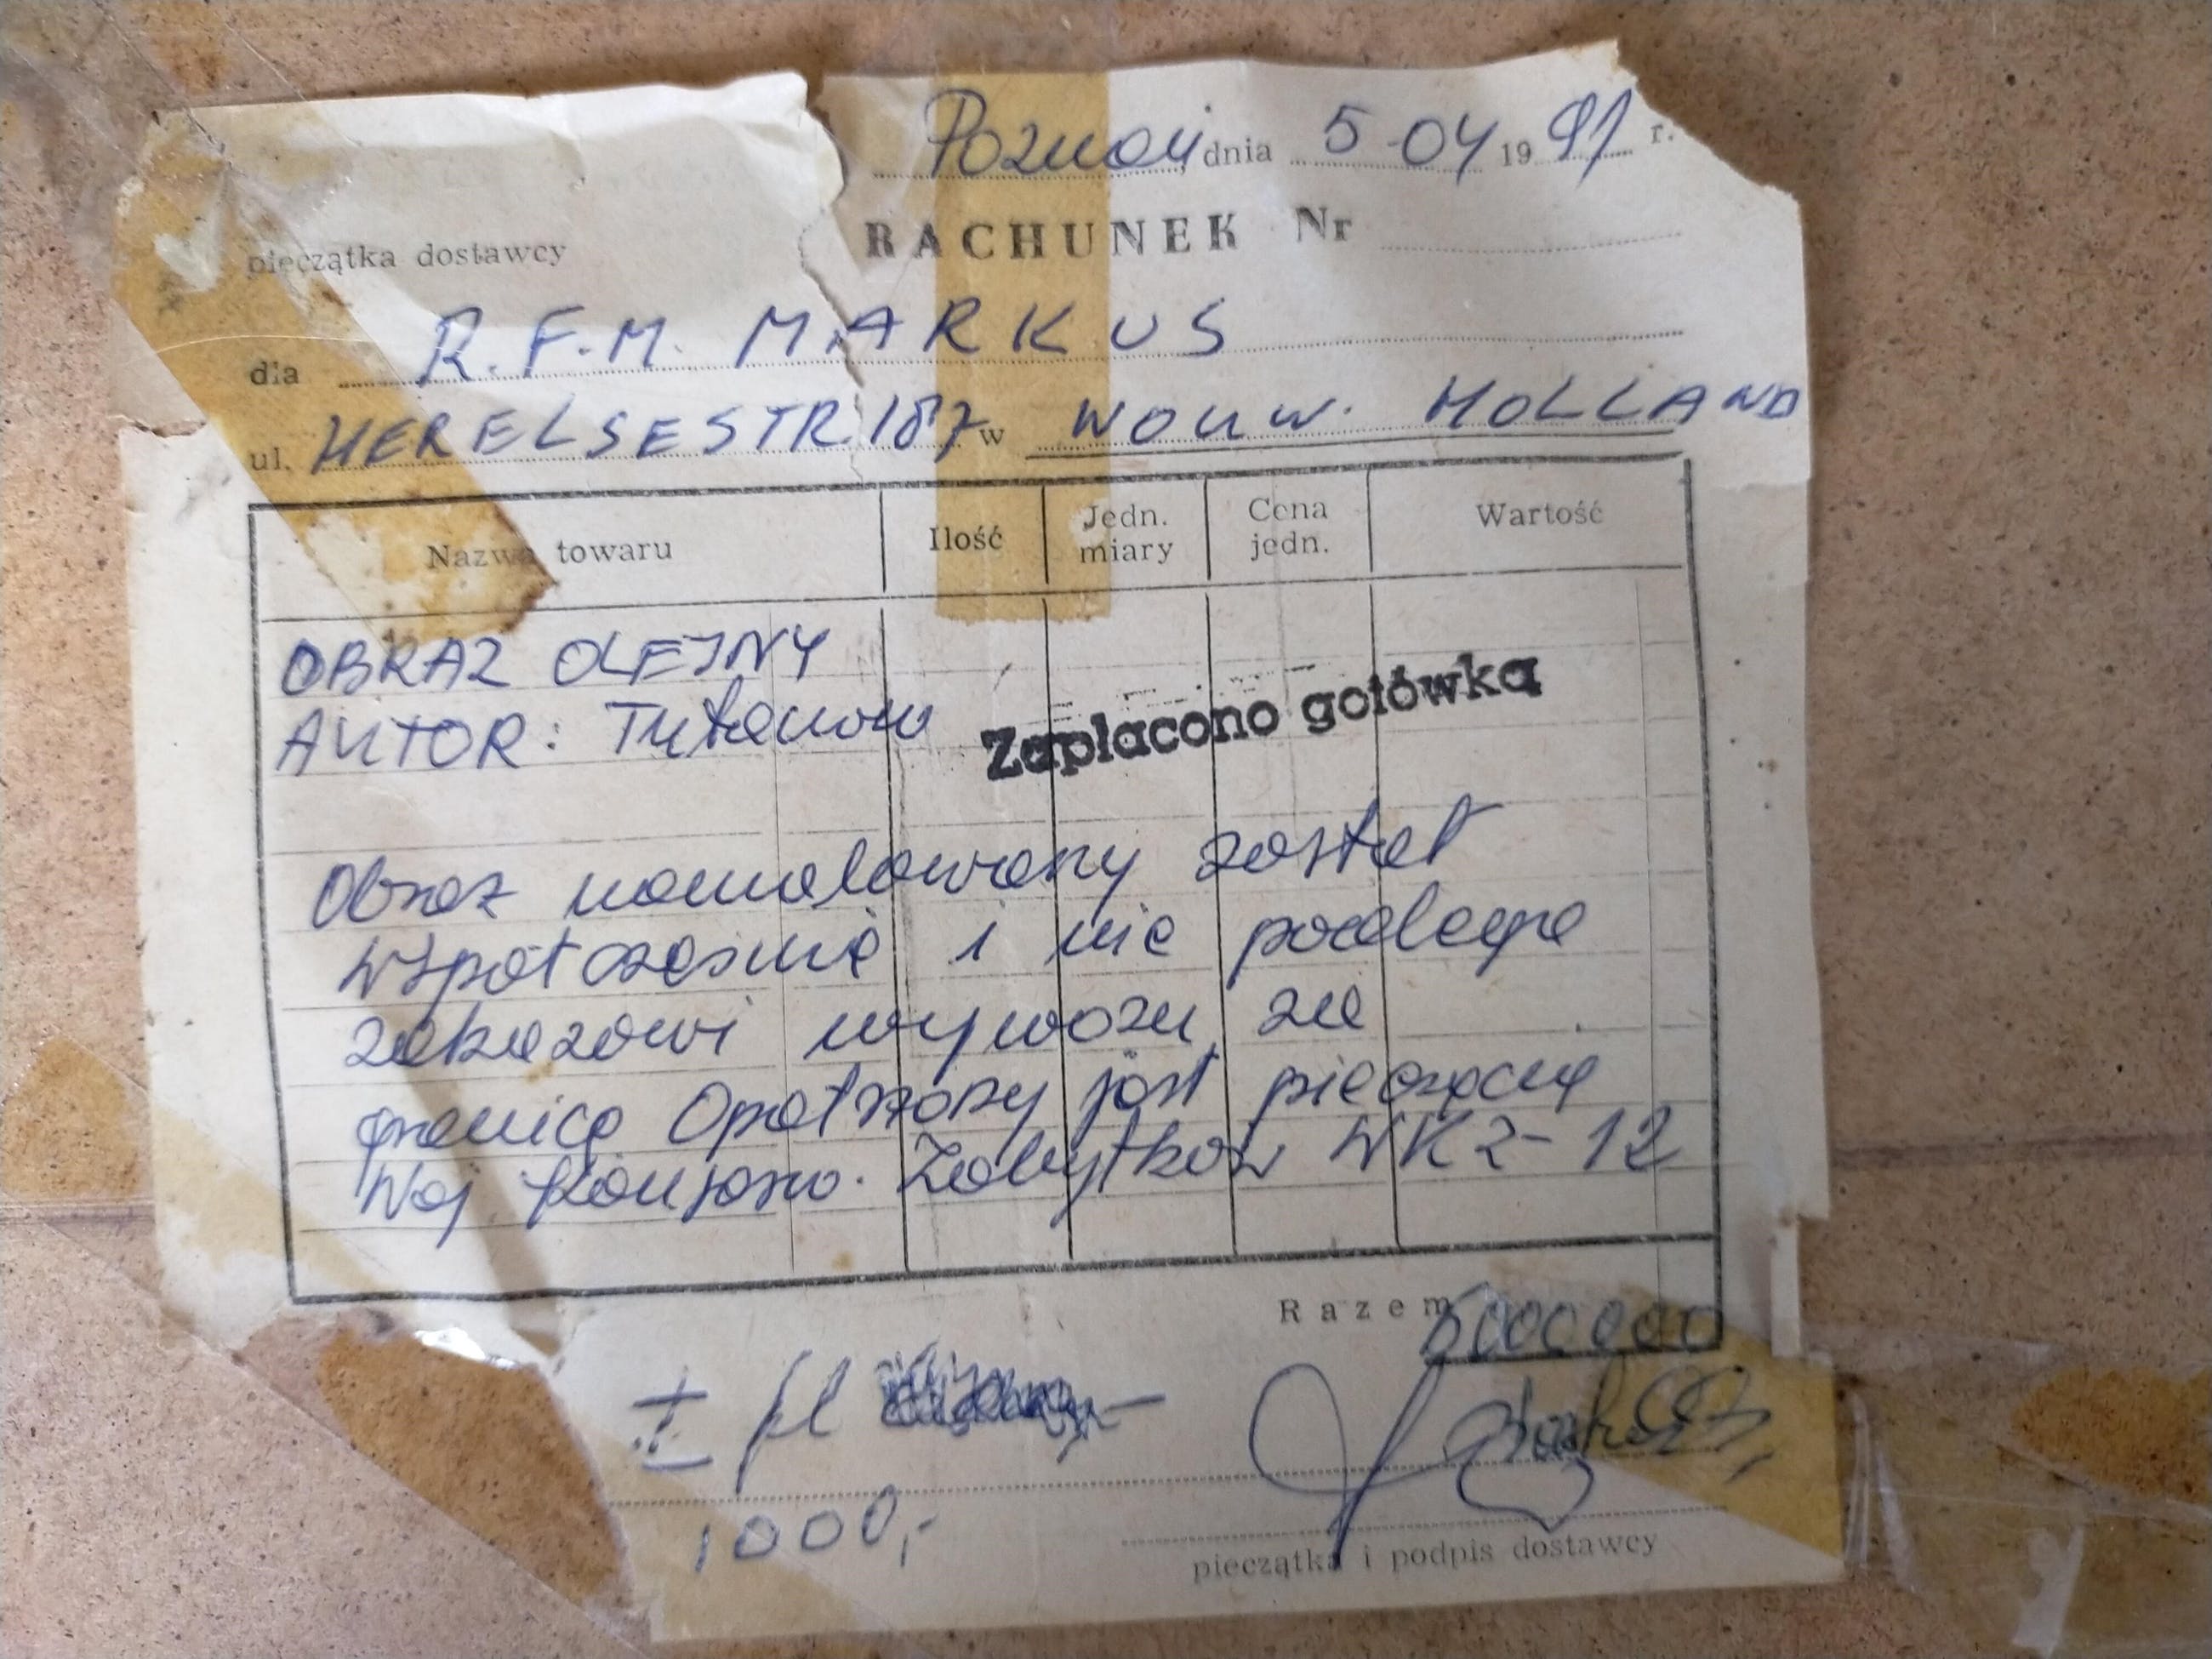 Poznań, dnia 5-04 1991 r.
pieczątka dostawcy
RACHUNEK Nr
dla R.F.M. MARKUS
ul. HERELSESTR. 187 w WOUW. HOLLAND
Nazwa towaru Ilość Jedn. miary Cena jedn. Wartość
OBRAZ OLEJNY
AUTOR:
Zapłacono gotówką
Obraz namalowany został
współcześnie i nie podlega
zakazowi wywozu za
granicę Opatrzony jest pieczęcią
Woj Konserw. Zabytków WKZ-12
Razem 5000000
± fl
1000,-
pieczątka i podpis dostawcy